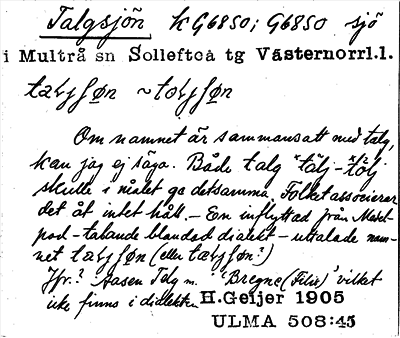 Talgsjön kG6850; G6850 sjö
i Multrå sn Sollefteå tg Västernorrl.l.
Om namnet är sammansatt med talg,
kan jag ej säga. Både talg tälj - tölj
skulle i målet ge detsamma. Folket associerar
det åt intet håll. - En inflyttad från Medel-
pad - talande blandad dialekt - uttalade nam-
net (eller
Jfr.? Aasen Telg m. "Bregne (Filix)" vilket
icke finns i dialekten H.Geijer 1905
ULMA 508:45